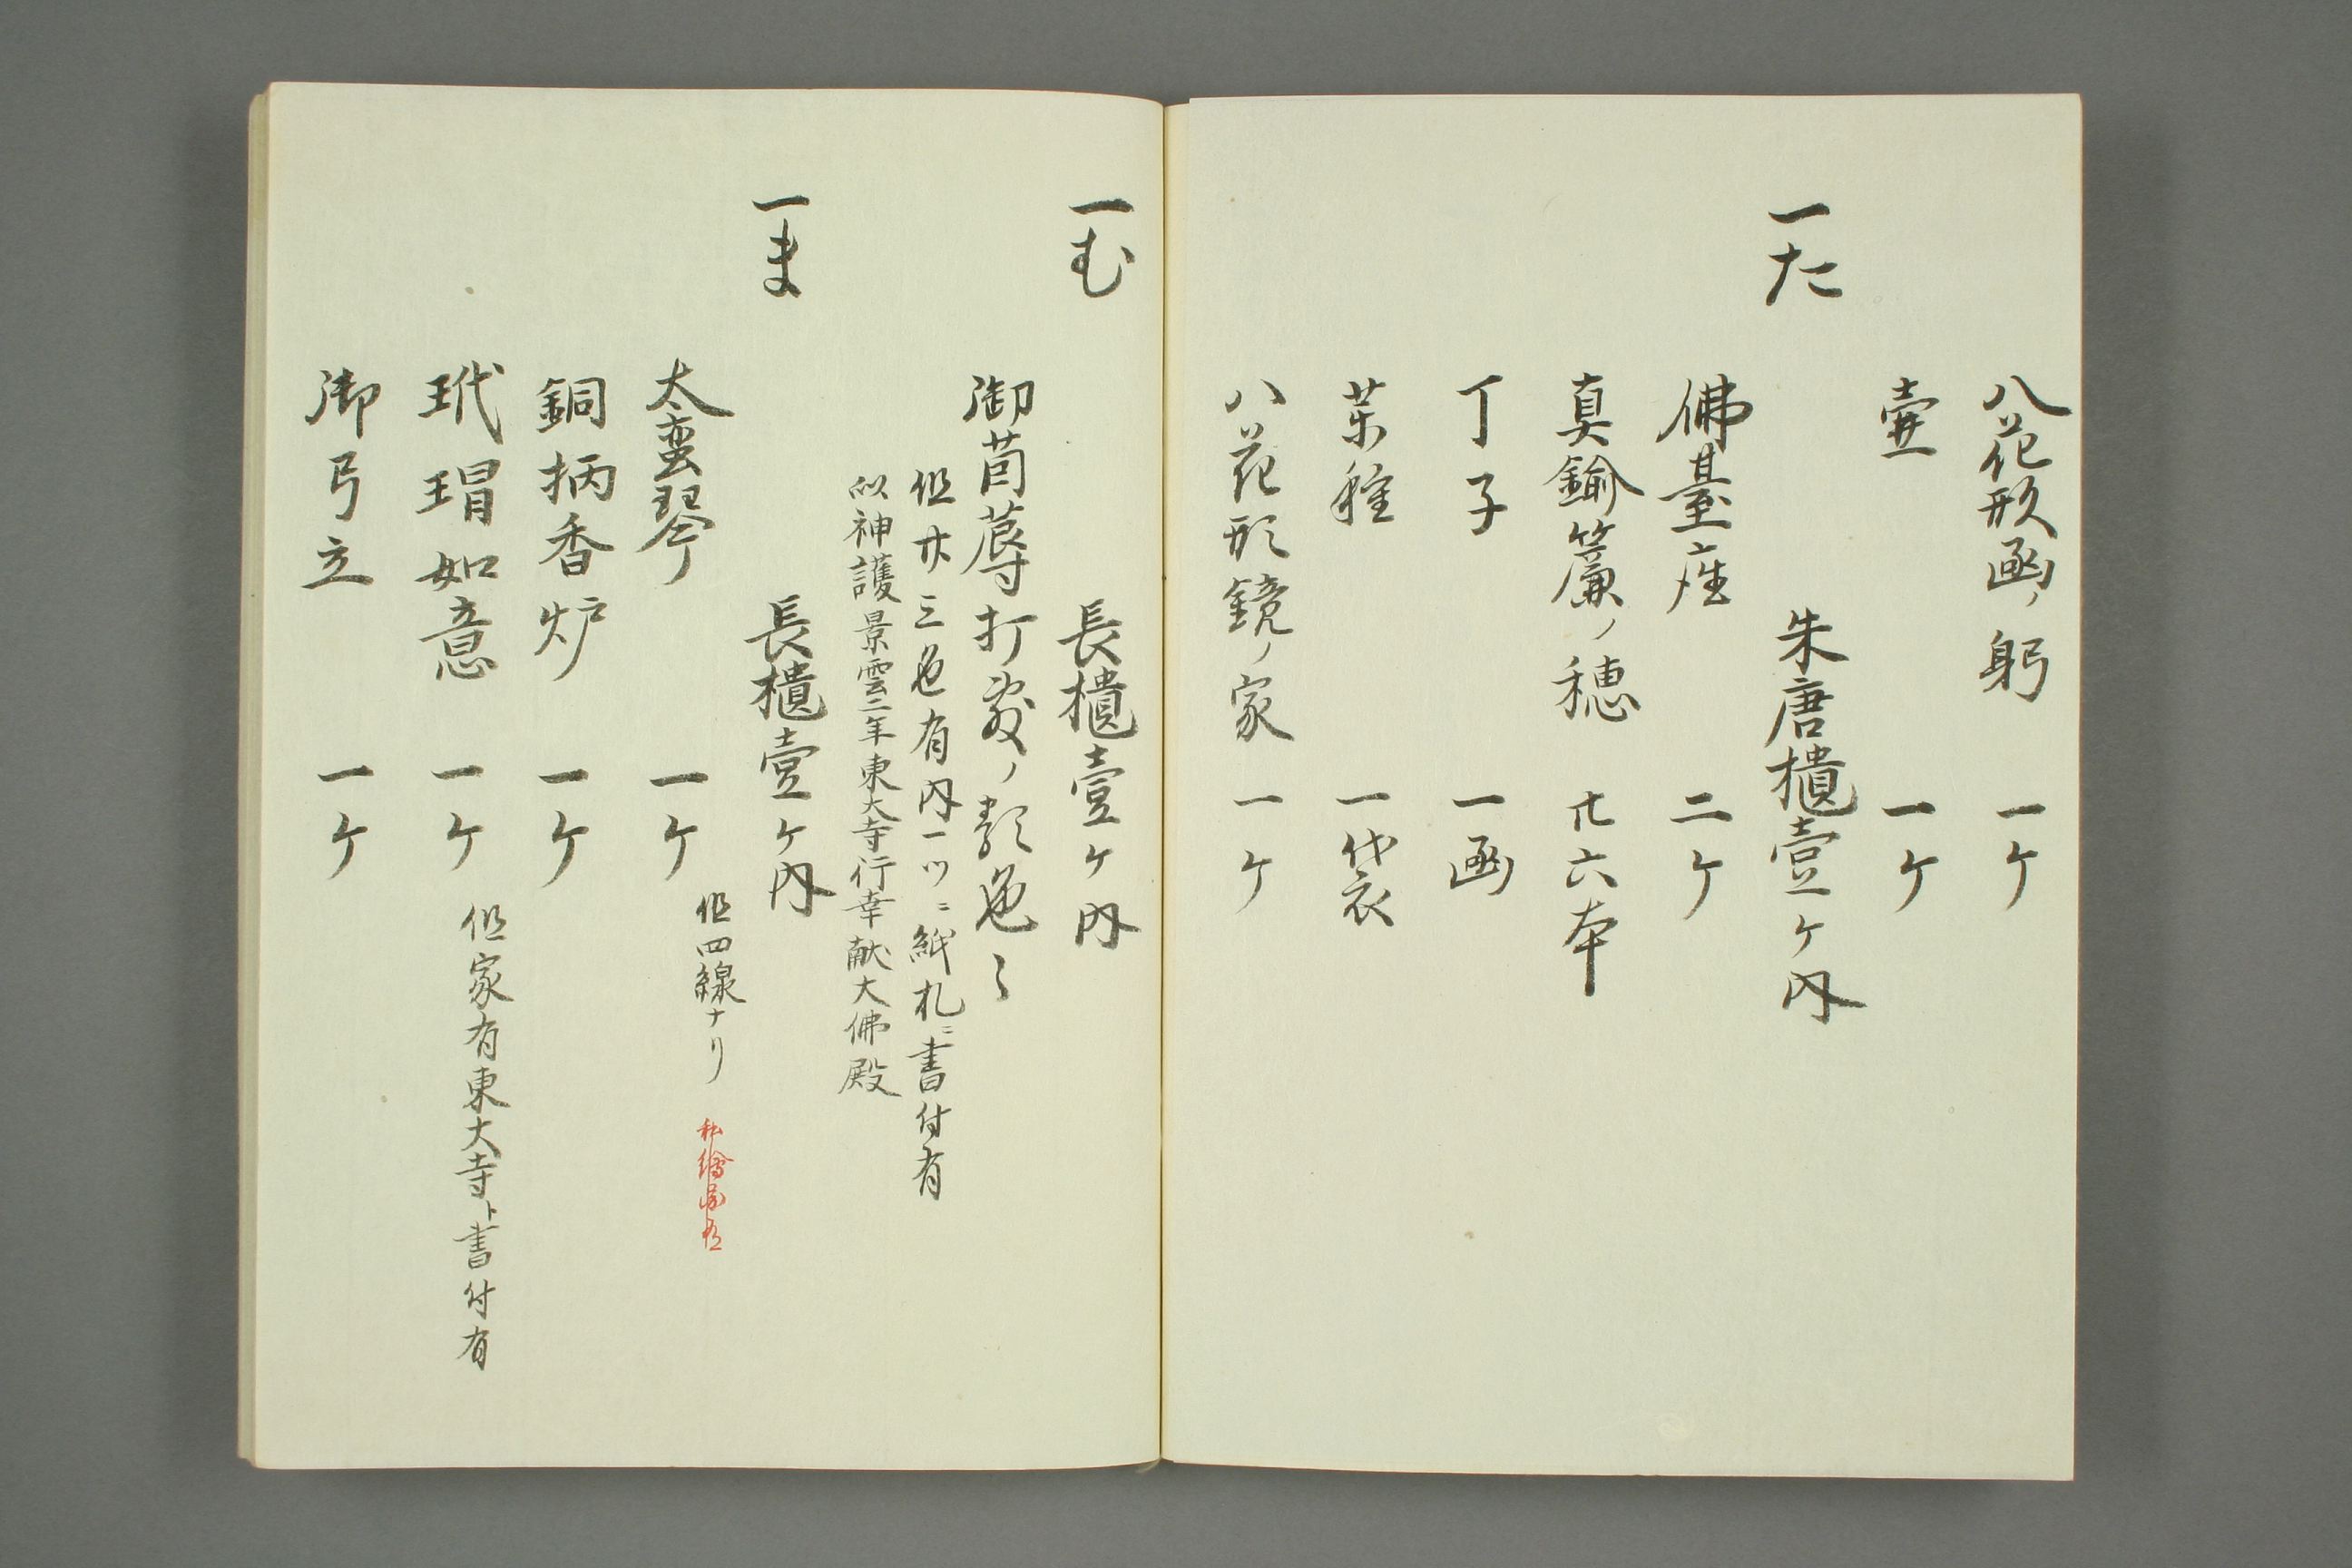 八花形函ノ躬　一ケ
壷　一ケ
一た　朱唐櫃壹ケ内
佛臺座　二ケ
真鍮簾ノ穂　卅六本
丁子　一函
薬種　一袋
八花形鏡ノ家　一ケ
一む　長櫃壹ケ内
御茵蓐打敷ノ類色〻
但廾三色有内一ツニ紙札ニ書付有
似神護景雲二年東大寺行幸献大佛殿
一ま　長櫃壹ケ内
太蛮琴　一ケ　但四線ナリ
銅柄香炉　一ケ
玳瑁如意　一ケ　但家有東大寺ト書付有
御弓立　一ケ